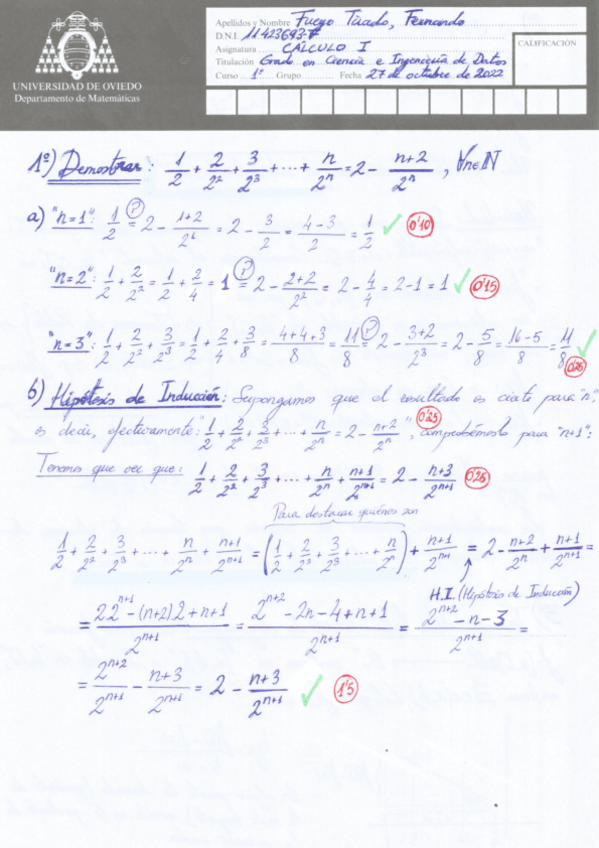 UNIVERSIDAD DE OVIEDO
Departamento de Matemáticas
Apellidos y Nombre Fueyo Tirado, Fernando
D.N.I. 11423693-F
Asignatura CÁLCULO I
Titulación Grado en Ciencia e Ingeniería de Datos
Curso 1º Grupo Fecha 27 de octubre de 2022
CALIFICACIÓN
1º) Demostrar: 1/2 + 2/2² + 3/2³ + ... + n/2ⁿ = 2 - (n+2)/2ⁿ, ∀n∈ℕ
a) "n=1": 1/2 =(?) 2 - (1+2)/2¹ = 2 - 3/2 = (4-3)/2 = 1/2 ✓ 0'10
"n=2": 1/2 + 2/2² = 1/2 + 2/4 = 1 =(?) 2 - (2+2)/2² = 2 - 4/4 = 2-1 = 1 ✓ 0'15
"n=3": 1/2 + 2/2² + 3/2³ = 1/2 + 2/4 + 3/8 = (4+4+3)/8 = 11/8 =(?) 2 - (3+2)/2³ = 2 - 5/8 = (16-5)/8 = 11/8 ✓ 0'25
b) Hipótesis de Inducción: Supongamos que el resultado es cierto para "n",
es decir, efectivamente: 1/2 + 2/2² + 3/2³ + ... + n/2ⁿ = 2 - (n+2)/2ⁿ, 0'25 comprobémoslo para "n+1":
Tenemos que ver que: 1/2 + 2/2² + 3/2³ + ... + n/2ⁿ + (n+1)/2ⁿ⁺¹ = 2 - (n+3)/2ⁿ⁺¹ 0'25
Para destacar quiénes son
1/2 + 2/2² + 3/2³ + ... + n/2ⁿ + (n+1)/2ⁿ⁺¹ = (1/2 + 2/2² + 3/2³ + ... + n/2ⁿ) + (n+1)/2ⁿ⁺¹ = 2 - (n+2)/2ⁿ + (n+1)/2ⁿ⁺¹ =
H.I. (Hipótesis de Inducción)
= (2 2ⁿ⁺¹ - (n+2)2 + n+1)/2ⁿ⁺¹ = (2ⁿ⁺² - 2n - 4 + n + 1)/2ⁿ⁺¹ = (2ⁿ⁺² - n - 3)/2ⁿ⁺¹ =
= 2ⁿ⁺²/2ⁿ⁺¹ - (n+3)/2ⁿ⁺¹ = 2 - (n+3)/2ⁿ⁺¹ ✓ 1'5